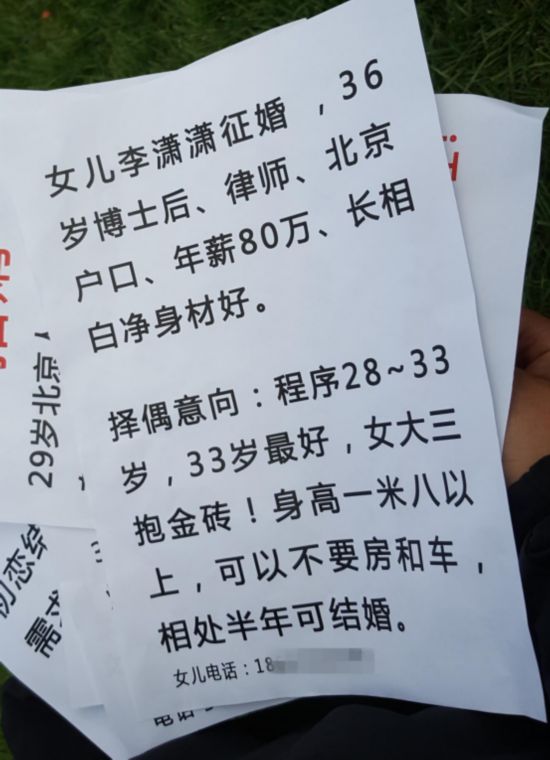 女儿李潇潇征婚 ，36
岁博士后、律师、北京
户口、年薪80万、长相
白净身材好。
择偶意向：程序28~33
岁，33岁最好，女大三
抱金砖！身高一米八以
上，可以不要房和车，
相处半年可结婚。
女儿电话：18
29岁北京
初恋结
需求
电话